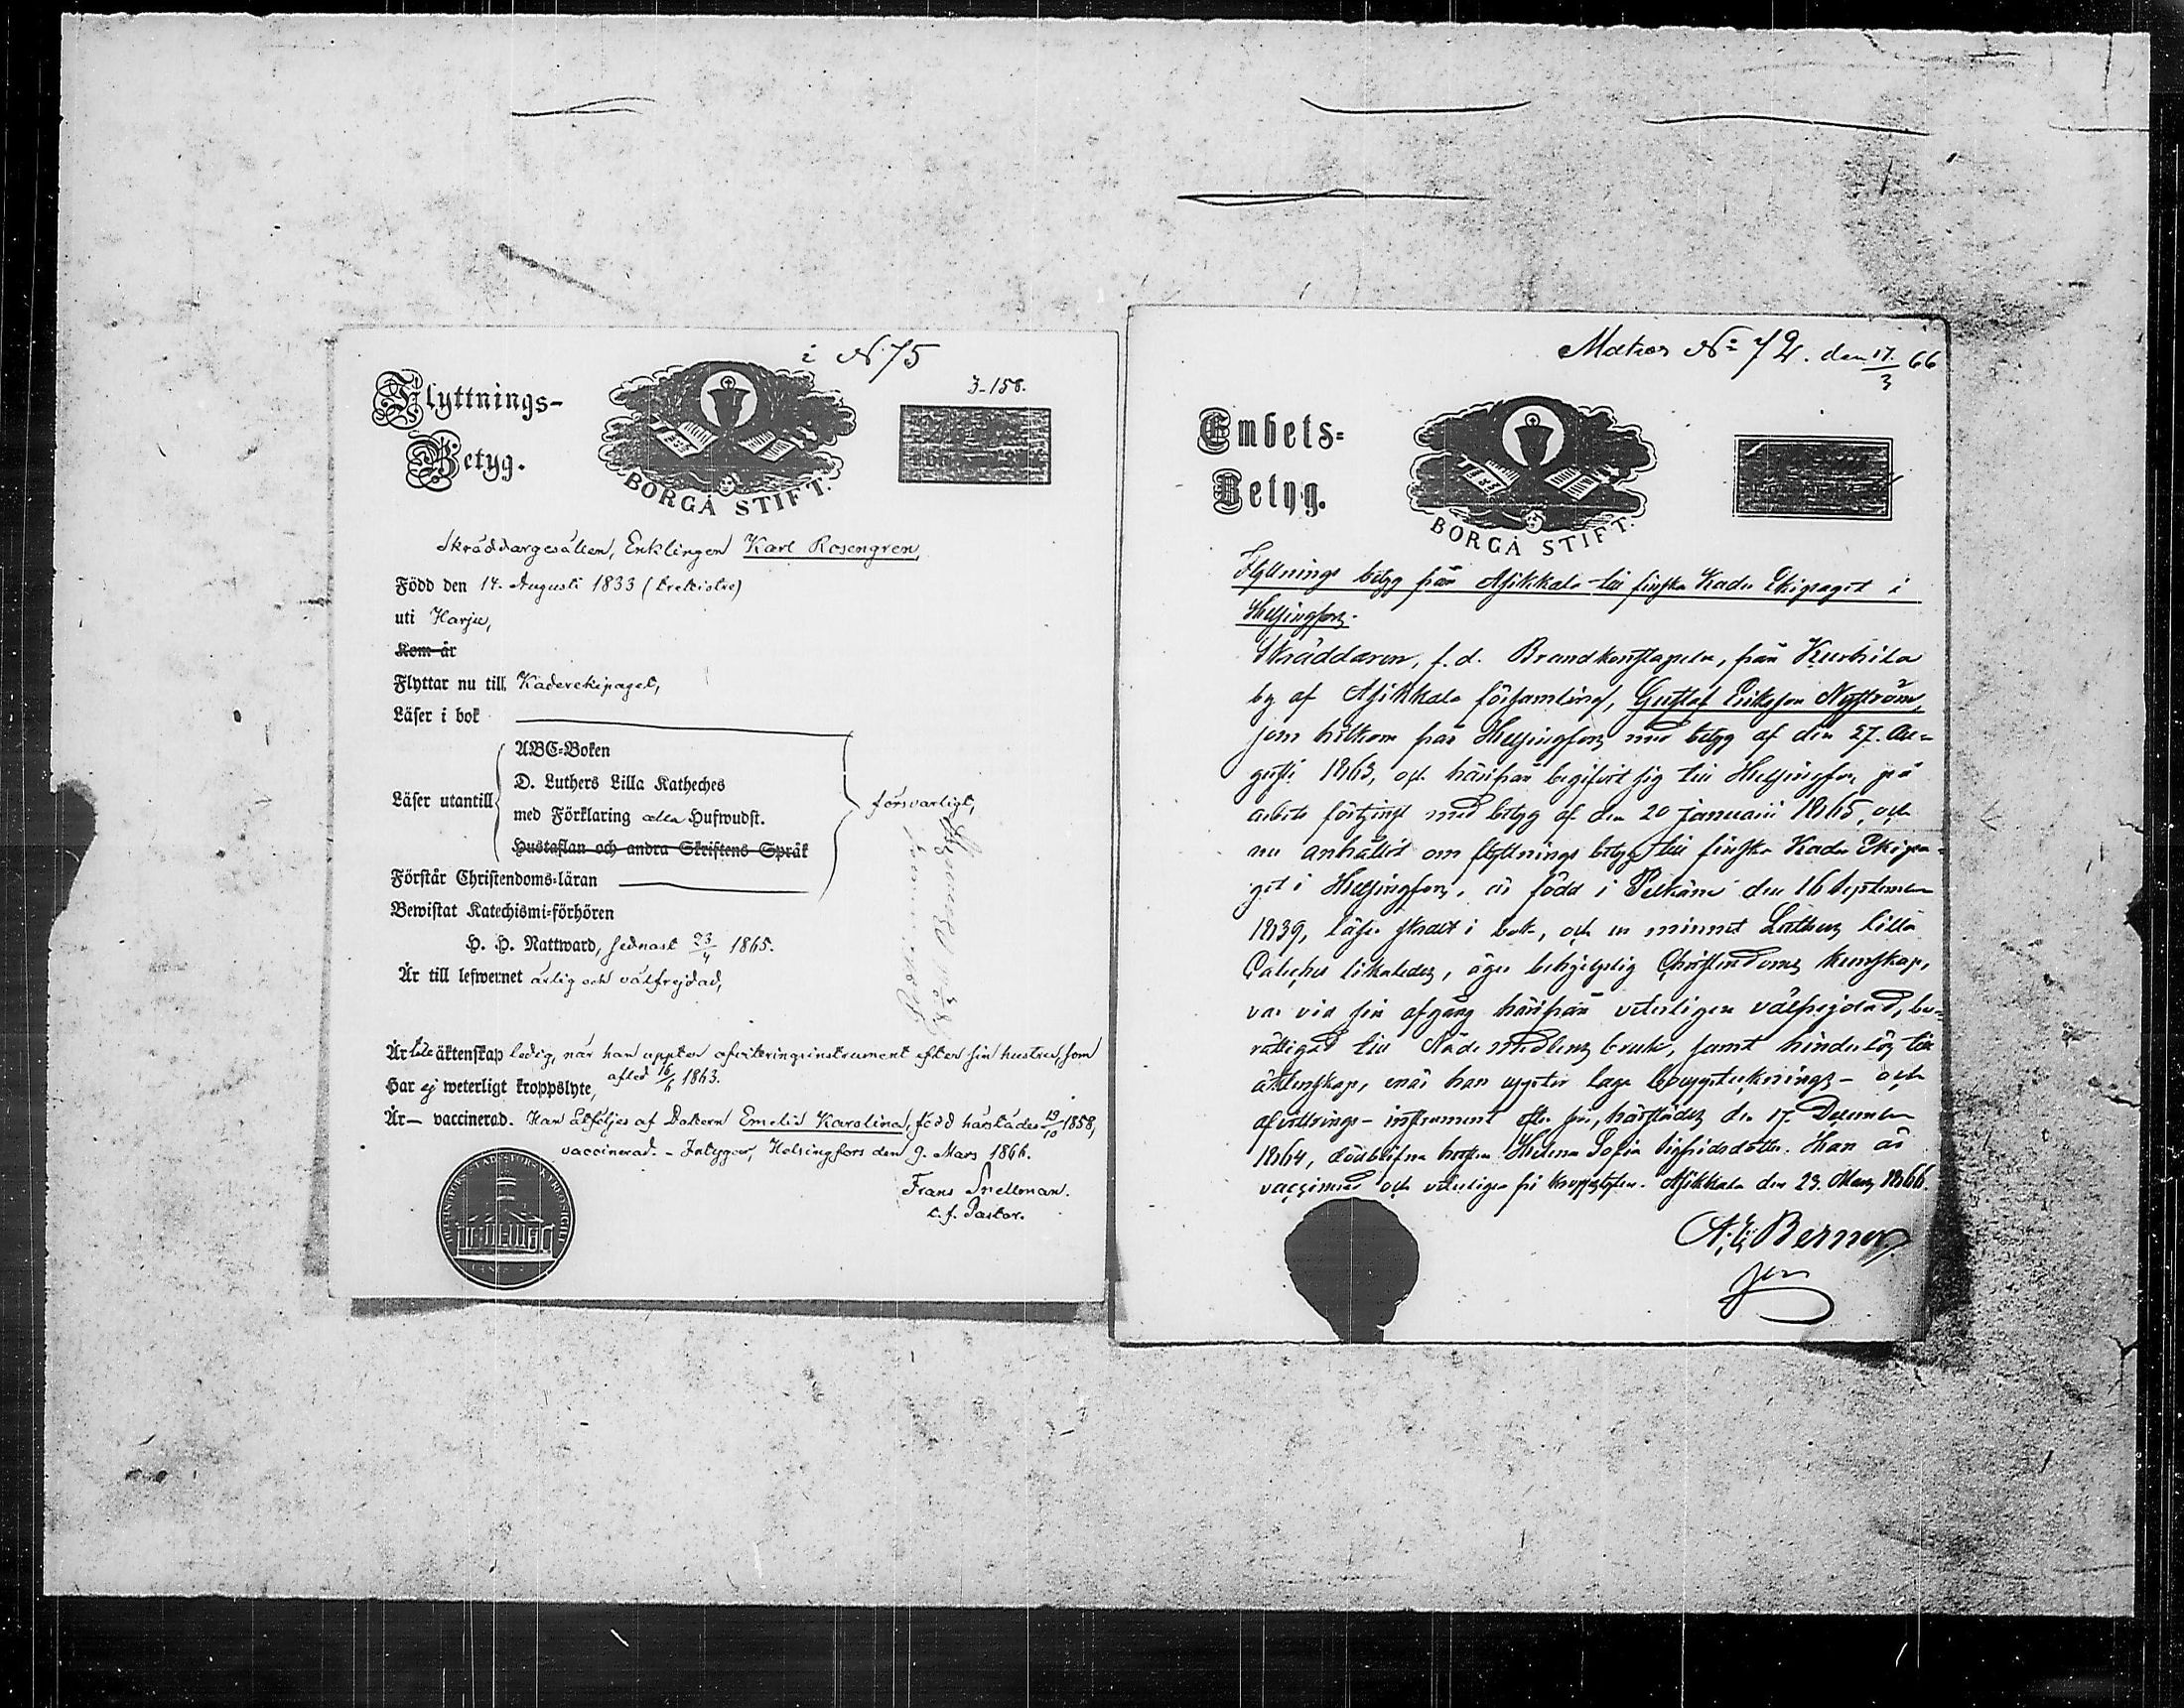 i N 75
3-158.
Flyttnings-
Betyg.
BORGÅ STIFT.
Skräddargesällen, Enklingen Karl Rosengren,
Född den 14. Augusti 1833 (trettiotre)
uti Harju,
Kom år
Flyttar nu till Kaderekipaget,
Läser i bok
ABC-Boken
D. Luthers Lilla Katheches
Läser utantill
med Förklaring alla Hufwudst.
försvarligt,
Hustaflan och andra Skriftens Språk
Förstår Christendoms-läran
Bewistat Katechismi-förhören
H. H. Nattward, sednast 23/4 1865.
Är till lefwernet ärlig och välfrejdad,
Är till äktenskap ledig, när han uppter afvitringsinstrument efter sin hustru, som
afled 16/6 1863.
Har ej weterligt kroppslyte,
Är — vaccinerad. Han åtföljes af Dottern Emelie Karolina, född härstädes 19/10 1858,
vaccinerad. - Intygar, Helsingfors den 9. Mars 1866.
Frans Snellman.
t. f. Pastor.
Matros No 72. den 17/3 66
Embets-
Betyg.
BORGÅ STIFT.
Flyttnings betyg från Asikkala till finska Kader Ekipaget i
Helsingfors.
Skräddaren, f.d. Brandkonstapeln, från Kurhila
by af Asikkala församling, Gustaf Eriksson Nyström,
som hitkom från Helsingfors med betyg af den 27. Au-
gusti 1863, och härifrån begifvit sig till Helsingfors på
arbets förtjenst med betyg af den 20 Januarii 1865, och
nu anhållit om flyttnings betyg till finska Kader Ekipa-
get i Helsingfors, är född i Pelkäne den 16 September
1839, läser slätt i bok, och ur minnet Luthers lilla
Cateches likaledes, äger behjelpelig Christendoms kunskap,
var vid sin afgång härifrån veterligen välfrejdad, be-
rättigad till Nåde Medlens bruk, samt hinderlös till
äktenskap, enär han uppter laga bouppteknings- och
afvittrings-instrument efter sin, härstädes den 17. December
1864, dödblifna hustru Helena Sofia Sigfridsdotter. Han är
vaccinerad och veterligen fri kroppslyten. Asikkala den 23. Mars 1866.
A. G. Berner